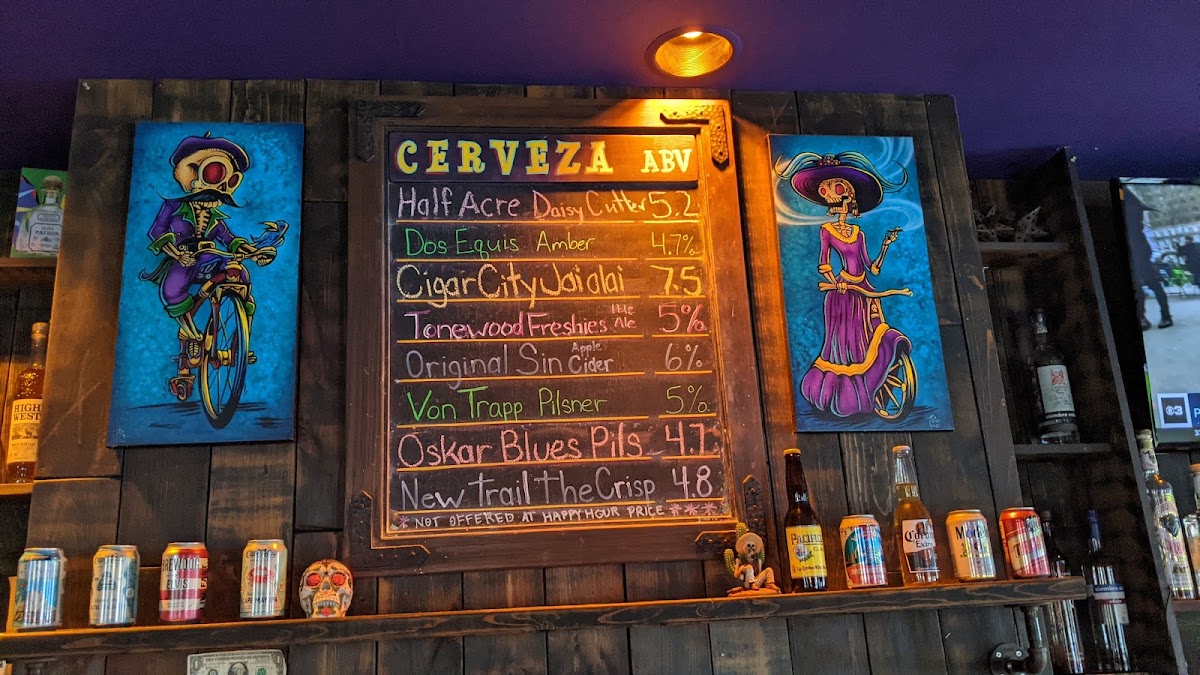 CERVEZA ABV
Half Acre Daisy Cutter 5.2
Dos Equis Amber 4.7%
Cigar City Jai alai 7.5
Tonewood Freshies Pale Ale 5%
Original Sin Apple Cider 6%
Von Trapp Pilsner 5%
Oskar Blues Pils 4.7
New Trail The Crisp 4.8
* NOT OFFERED AT HAPPY HOUR PRICE ***
PATRÓN
HIGH
WEST
Pacifico
Corona
Extra
3
P